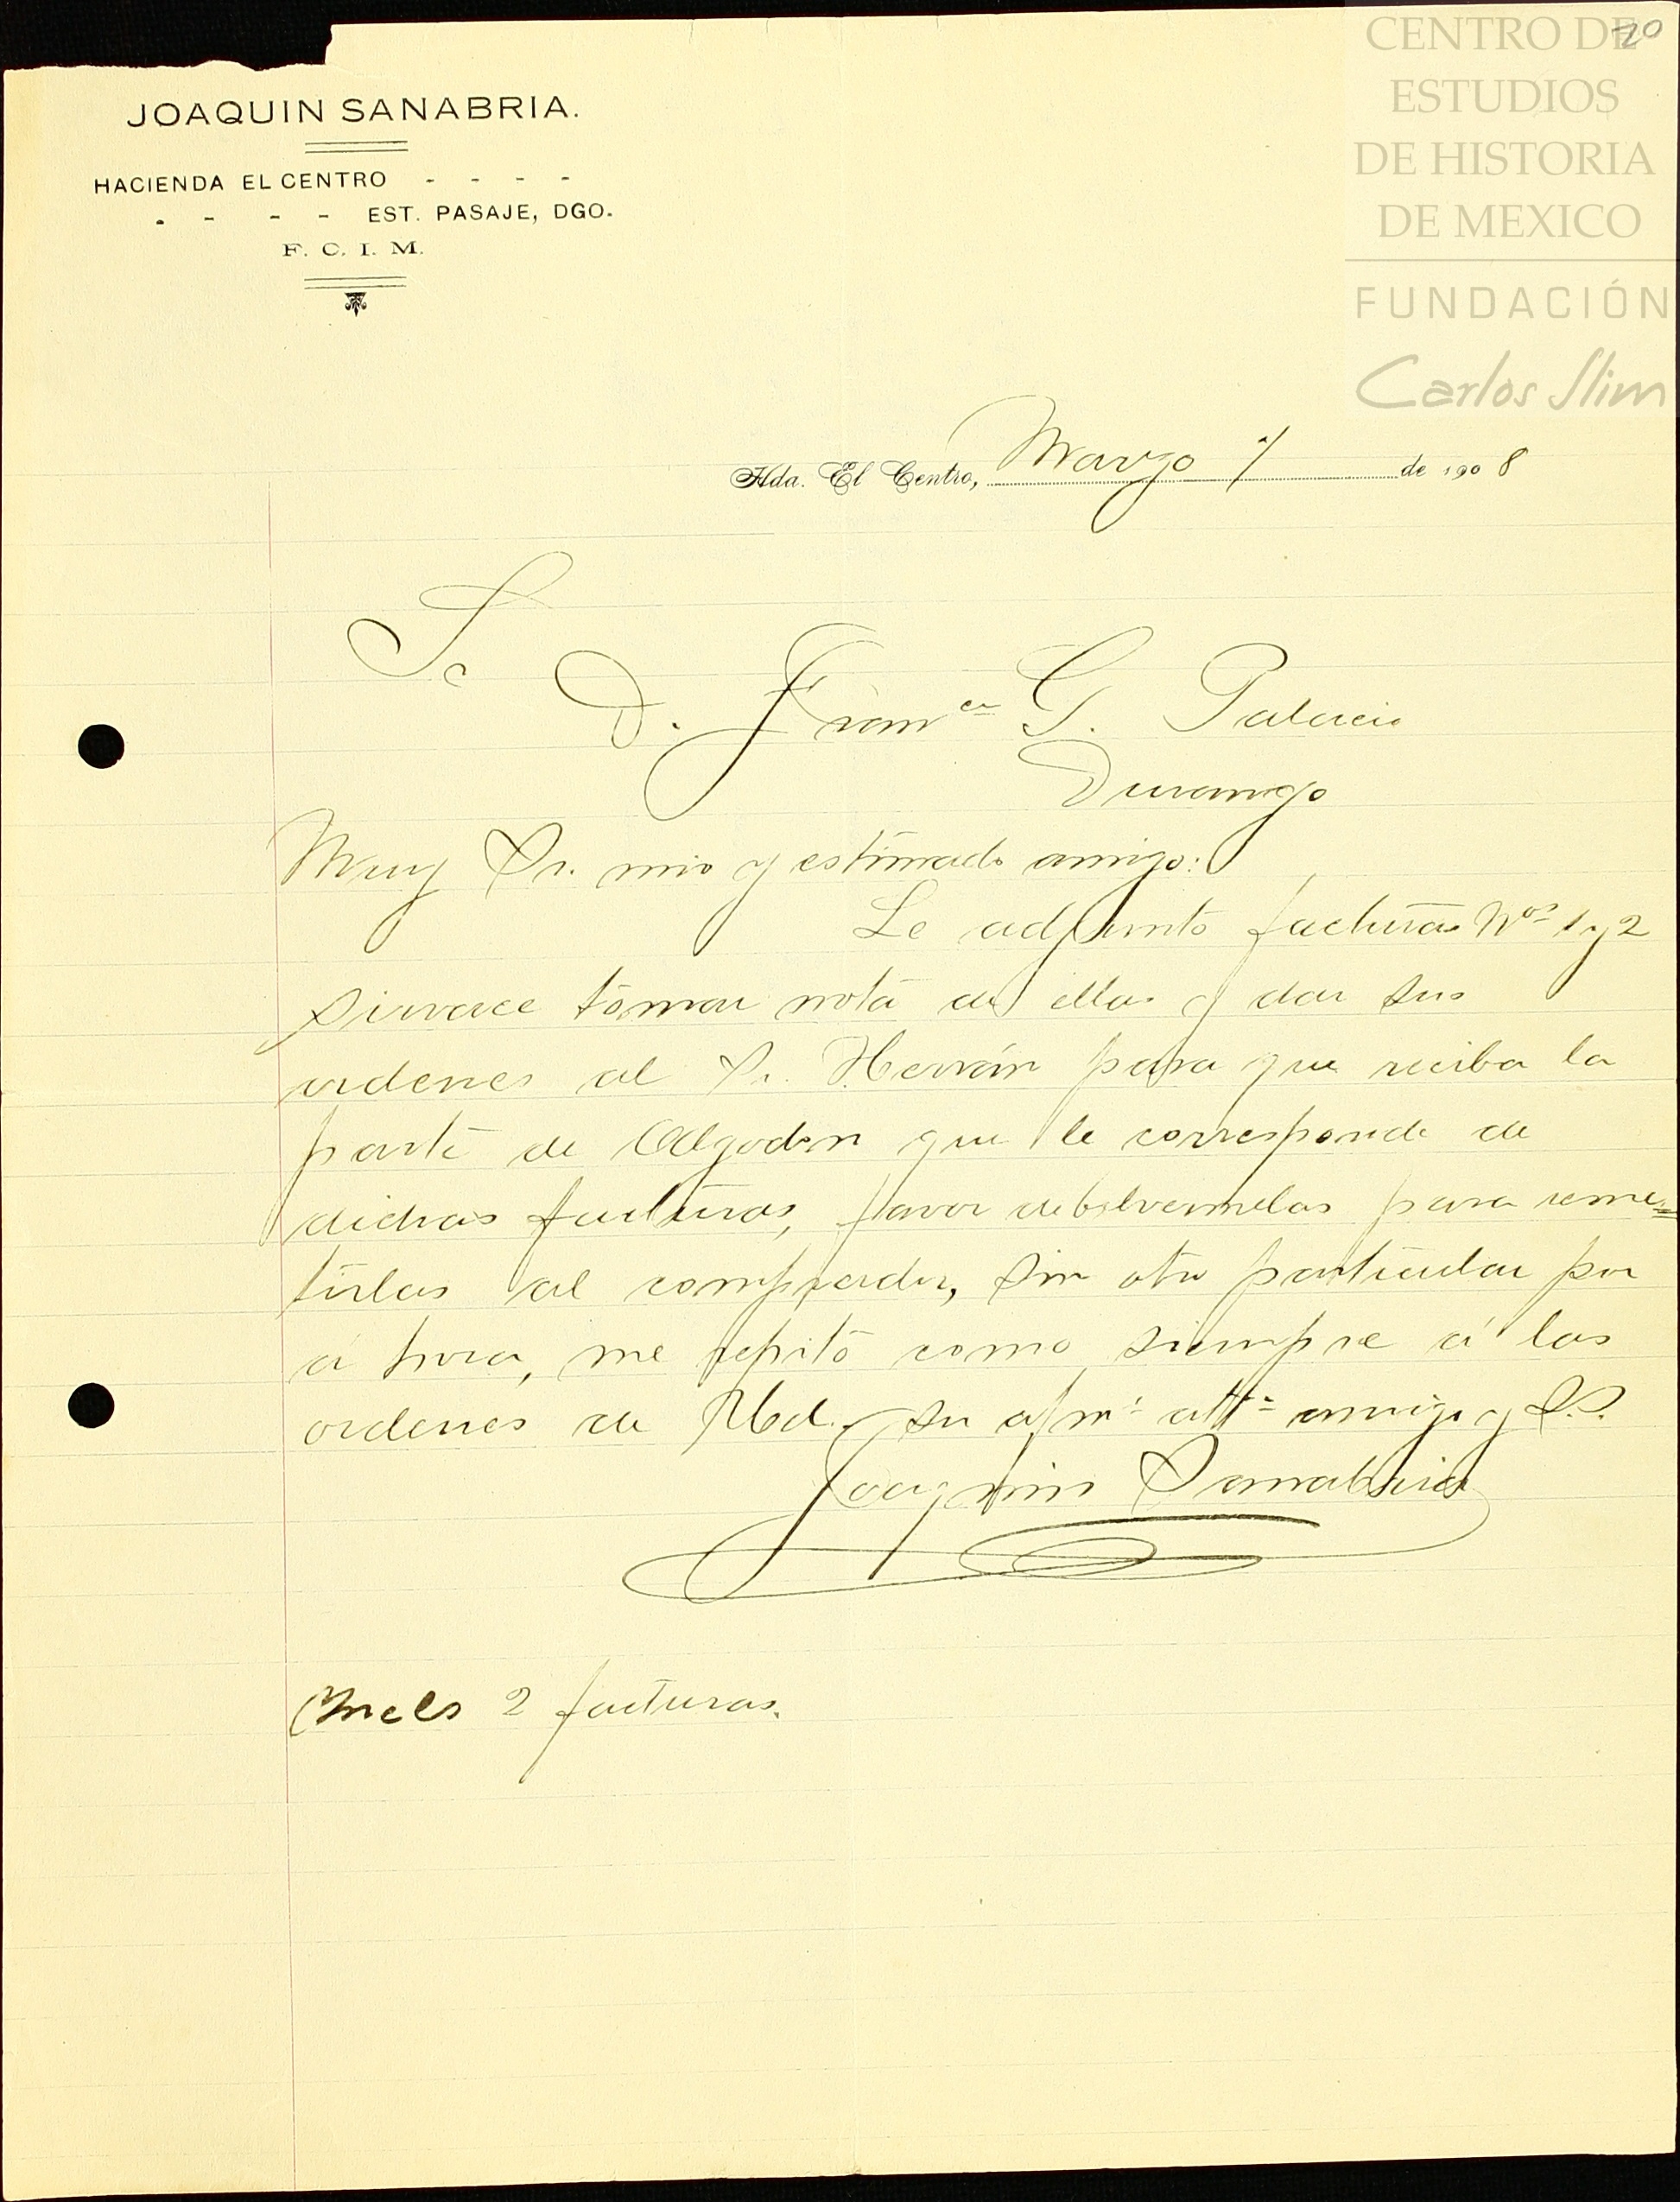 70
CENTRO DE
ESTUDIOS
DE HISTORIA
DE MEXICO
FUNDACIÓN
Carlos Slim
JOAQUIN SANABRIA.
HACIENDA EL CENTRO - - - -
- - - - EST. PASAJE, DGO.
F. C. I. M.
Hda. El Centro, Marzo 7 de 1908
Sr
D. Franco G. Palacio
Durango
Muy Sr. mio y estimado amigo:
Le adjunto facturas Nos 1 y 2
sirvace tomar nota de ellas y dar sus
ordenes al Sr. Herrán para que reciba la
parte de Algodon que le corresponde de
dichas facturas, favor debolvermelas para reme=
tirlas al comprador, sin otro particular por
á hora, me repito como siempre á las
ordenes de Ud. su afmo atto amigo y S.S.
Joaquin Sanabria
Incls 2 facturas.